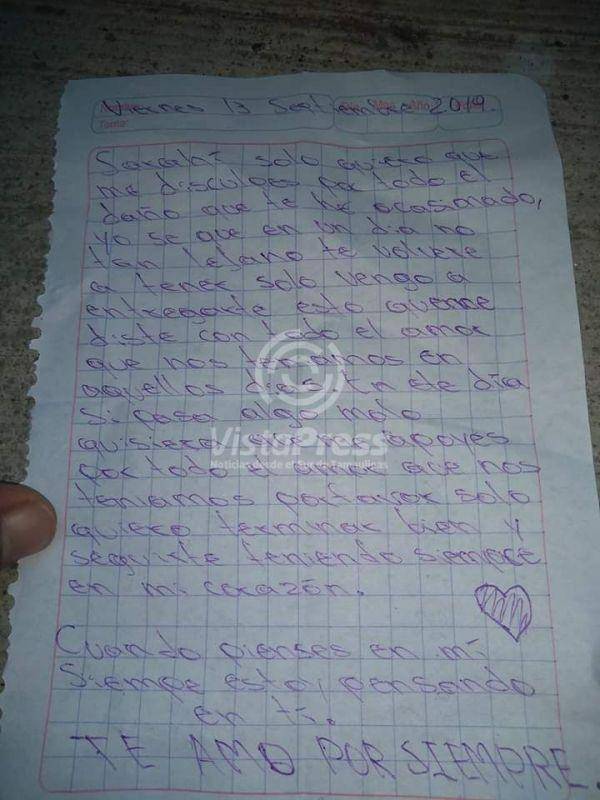 Viernes 13 Septiembre 2019.
Tema:
solo quiero que
me disculpes por todo el
daño que te he ocasionado,
yo se que en un dia no
tan lejano te volvere
a tener solo vengo a
entregarte esto que me
diste con todo el amor
que nos teniamos en
aquellos dias En este dia
Si pasa algo malo
quisiera que me apoyes
por todo el amor que nos
teniamos porfavor solo
quiero terminar bien y
seguirte teniendo siempre
en mi corazón.
Cuando pienses en mí
Siempre estoy pensando
en tí.
TE AMO POR SIEMPRE.
VistaPress
Noticias desde el Sur de Tamaulipas